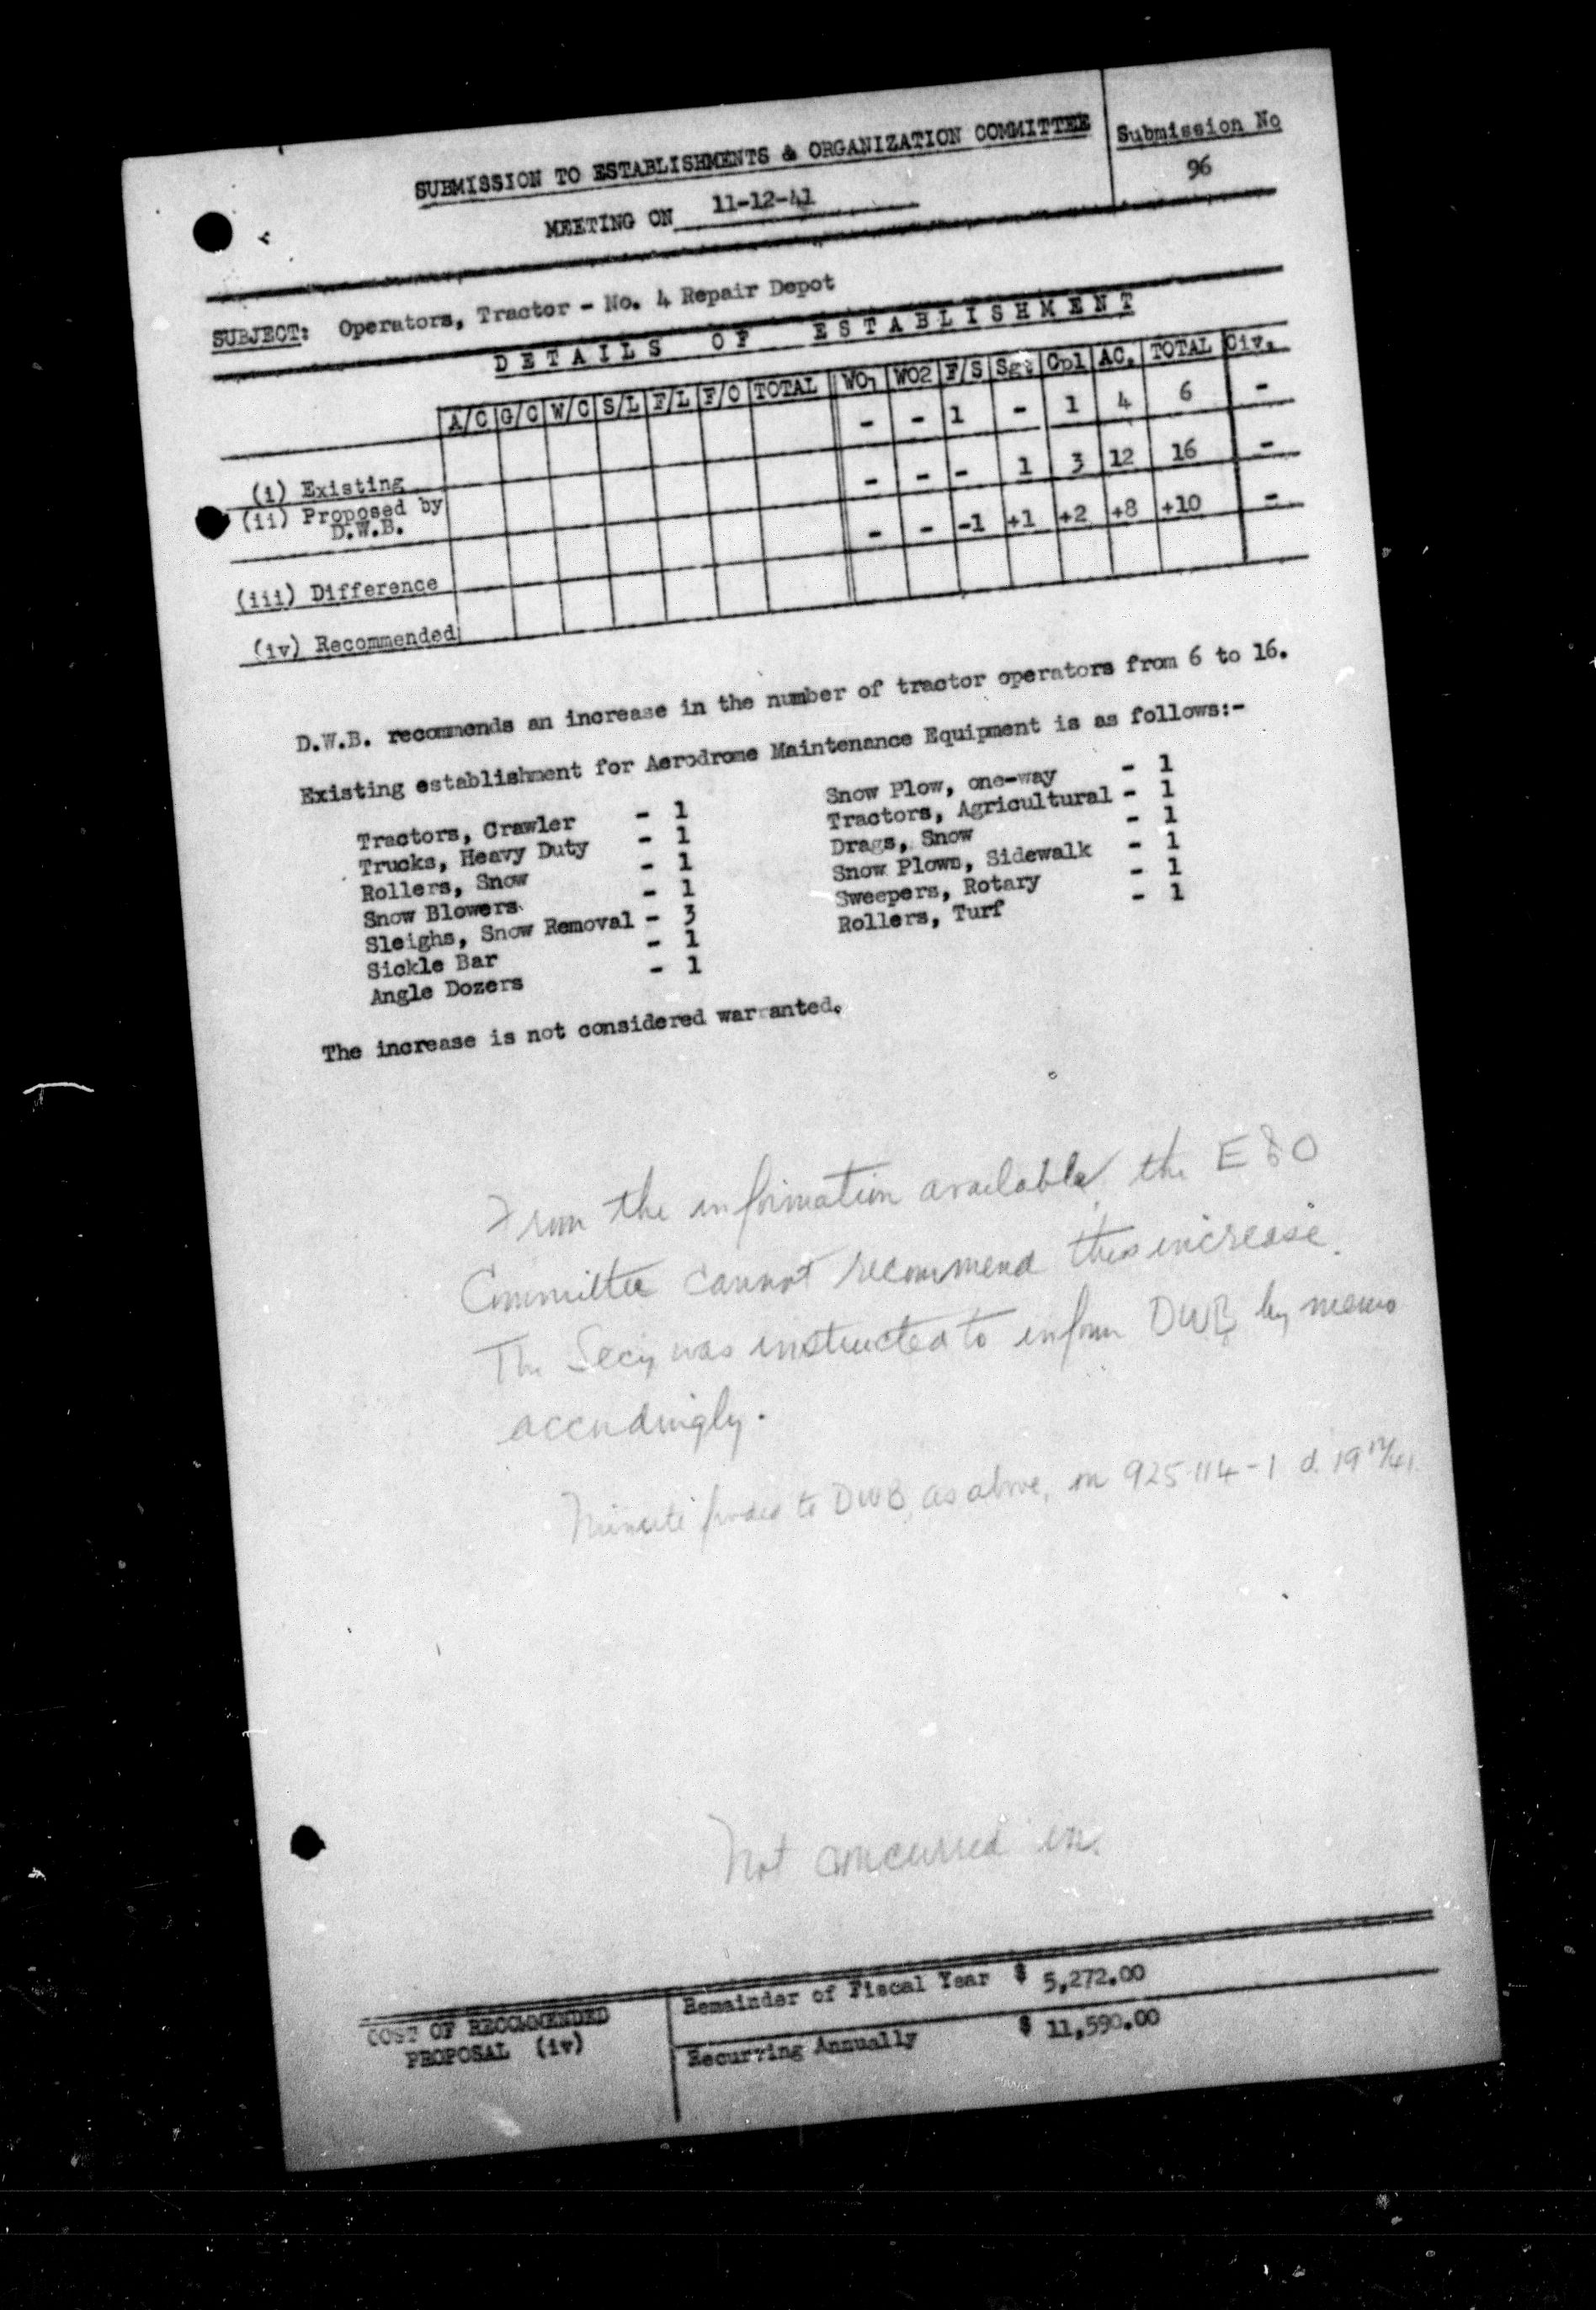 SUBMISSION TO ESTABLISHMENTS & ORGANIZATION COMMITTEE
Submission No
96
MEETING ON 11-12-41
SUBJECT: Operators, Tractor - No. 4 Repair Depot
DETAILS OF ESTABLISHMENT
A/C G/C W/C S/L F/L F/O TOTAL WO1 WO2 F/S Sgt Cpl AC. TOTAL Civ.
(i) Existing - - 1 - 1 4 6 -
(ii) Proposed by D.W.B. - - - 1 3 12 16 -
(iii) Difference - - -1 +1 +2 +8 +10 -
(iv) Recommended
D.W.B. recommends an increase in the number of tractor operators from 6 to 16.
Existing establishment for Aerodrome Maintenance Equipment is as follows:-
Tractors, Crawler - 1
Trucks, Heavy Duty - 1
Rollers, Snow - 1
Snow Blowers - 1
Sleighs, Snow Removal - 3
Sickle Bar - 1
Angle Dozers - 1
Snow Plow, one-way - 1
Tractors, Agricultural - 1
Drags, Snow - 1
Snow Plows, Sidewalk - 1
Sweepers, Rotary - 1
Rollers, Turf - 1
The increase is not considered warranted.
From the information available, the E&O
Committee cannot recommend this increase.
The Secy was instructed to inform DWB by memo
accordingly.
Minute to DWB, as above, on 925-114-1 d. 19/12/41.
Not concurred in.
COST OF RECOMMENDED
PROPOSAL (iv)
Remainder of Fiscal Year $ 5,272.00
Recurring Annually $ 11,590.00